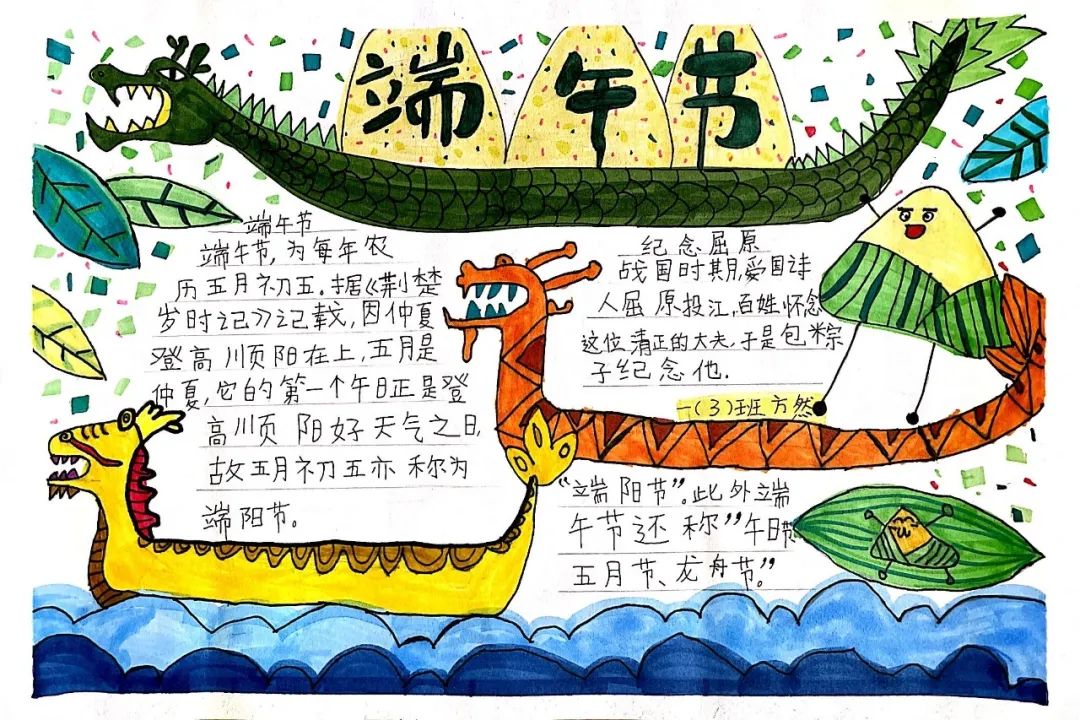 端午节
端午节
端午节,为每年农
历五月初五.据《荆楚
岁时记》记载,因仲夏
登高顺阳在上,五月是
仲夏,它的第一个午日正是登
高顺阳好天气之日,
故五月初五亦称为
端阳节。
纪念屈原
战国时期,爱国诗
人屈原投江,百姓怀念
这位清正的大夫,于是包粽
子纪念他.
一(3)班方然
“端阳节”。此外端
午节还称”午日节、
五月节、龙舟节。”